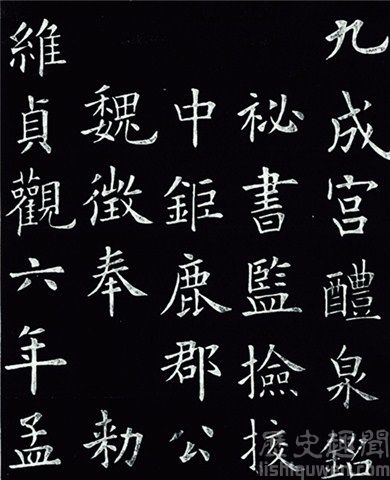 九成宮醴泉銘
祕書監撿挍
中鉅鹿郡公
魏徵奉　勑
維貞觀六年孟
歷史趣聞
lishiquwen.com